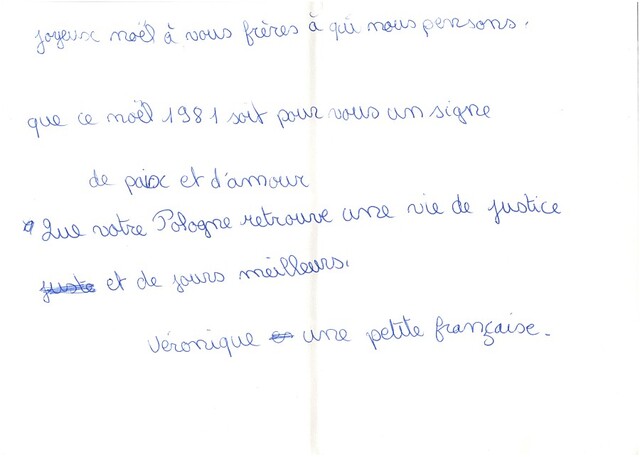 joyeux noël à vous frères à qui nous pensons.
que ce noël 1981 soit pour vous un signe
de paix et d'amour
Que votre Pologne retrouve une vie de justice
juste et de jours meilleurs.
Véronique une petite française.